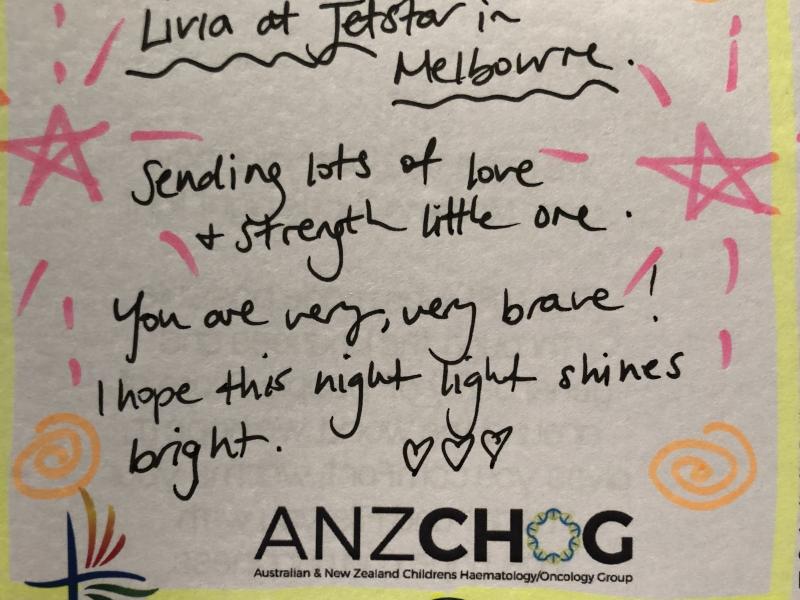 Livia at Jetstar in
Melbourne.
Sending lots of love
+ strength little one.
You are very, very brave!
I hope this night light shines
bright. ♡♡♡
ANZCHOG
Australian & New Zealand Childrens Haematology/Oncology Group